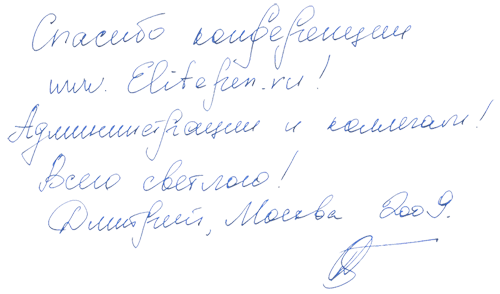 Спасибо конференции
www. Elitefen.ru!
Администрации и коллегам!
Всего светлого!
Дмитрий, Москва 2009.